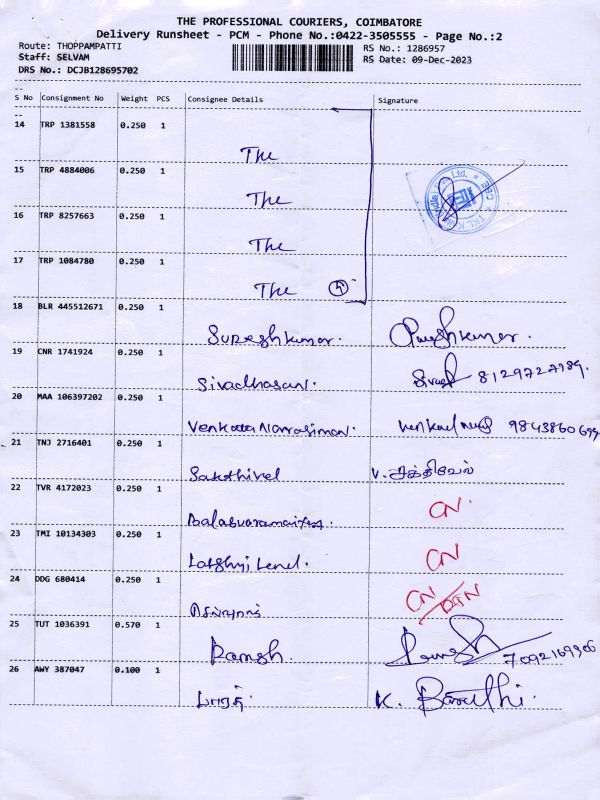 THE PROFESSIONAL COURIERS, COIMBATORE
Delivery Runsheet - PCM - Phone No.:0422-3505555 - Page No.:2
Route: THOPPAMPATTI RS No.: 1286957
Staff: SELVAM RS Date: 09-Dec-2023
DRS No.: DCJB128695702
S No Consignment No Weight PCS Consignee Details Signature
14 TRP 1381558 0.250 1
The
15 TRP 4884006 0.250 1
The
16 TRP 8257663 0.250 1
The
17 TRP 1084780 0.250 1
The
18 BLR 445512671 0.250 1
Sureshkumar.
19 CNR 1741924 0.250 1
Sivadhasan. 8129727989.
20 MAA 106397202 0.250 1
Venkatta Narrasiman. 9843860699
21 TNJ 2716401 0.250 1
Sakthivel V. சக்திவேல்
22 TVR 4172023 0.250 1
CN.
23 TMI 10134303 0.250 1
CN
24 DDG 680414 0.250 1
CN/DTN
25 TUT 1036391 0.570 1
Ramesh. 7092169906
26 AWY 387047 0.100 1
பாரத். K. Barathi.